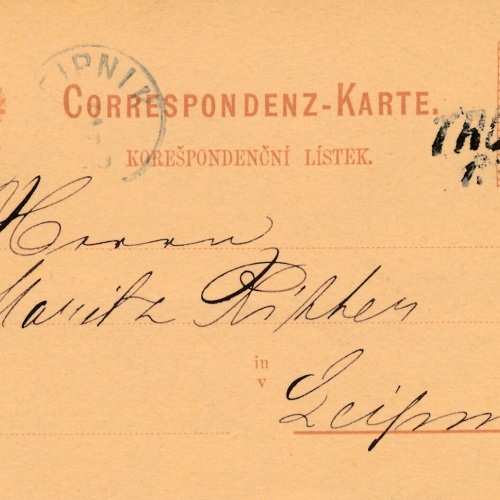 EIPNIK
CORRESPONDENZ-KARTE.
KOREŠPONDENČNÍ LÍSTEK.
Herrn
Moritz
in
v
Leipn